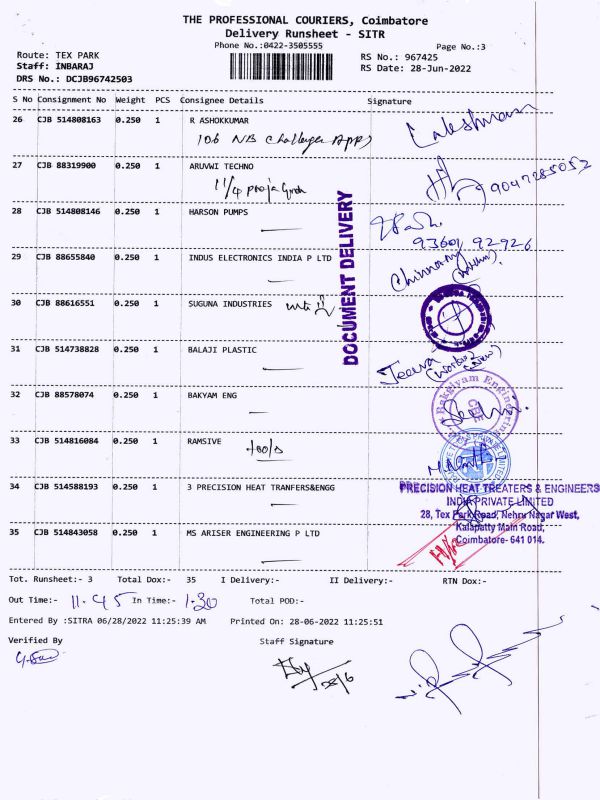 THE PROFESSIONAL COURIERS, Coimbatore
Delivery Runsheet - SITR
Phone No.:0422-3505555
Page No.:3
Route: TEX PARK
RS No.: 967425
Staff: INBARAJ
RS Date: 28-Jun-2022
DRS No.: DCJB96742503
S No Consignment No Weight PCS Consignee Details Signature
26 CJB 514808163 0.250 1 R ASHOKKUMAR
106 NB Challenger App
27 CJB 88319900 0.250 1 ARUVWI TECHNO
9047285052
28 CJB 514808146 0.250 1 HARSON PUMPS
93601 92926
29 CJB 88655840 0.250 1 INDUS ELECTRONICS INDIA P LTD
DOCUMENT DELIVERY
30 CJB 88616551 0.250 1 SUGUNA INDUSTRIES
31 CJB 514738828 0.250 1 BALAJI PLASTIC
Jeeva
32 CJB 88578074 0.250 1 BAKYAM ENG
Bakgiyam Engineering
CBE
33 CJB 514816084 0.250 1 RAMSIVE
34 CJB 514588193 0.250 1 3 PRECISION HEAT TRANFERS&ENGG
PRECISION HEAT TREATERS & ENGINEERS
INDIA PRIVATE LIMITED
28, Tex Park Road, Nehru Nagar West,
Kalapatty Main Road,
Coimbatore- 641 014.
35 CJB 514843058 0.250 1 MS ARISER ENGINEERING P LTD
Tot. Runsheet:- 3 Total Dox:- 35 I Delivery:- II Delivery:- RTN Dox:-
Out Time:- 11.45 In Time:- 1.30 Total POD:-
Entered By :SITRA 06/28/2022 11:25:39 AM Printed On: 28-06-2022 11:25:51
Verified By Staff Signature
28/6